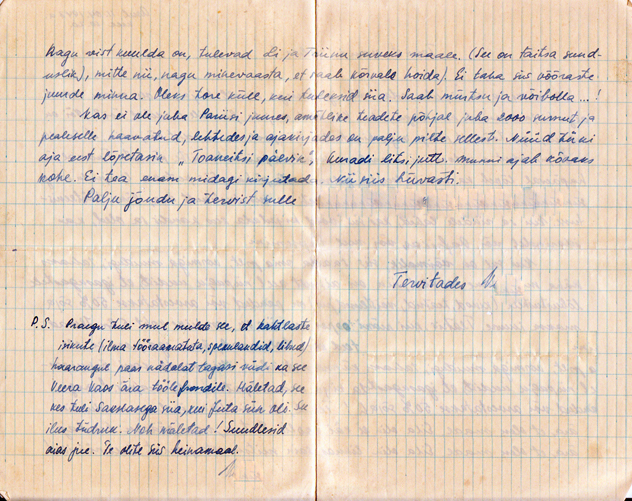 Nagu vist kuulda on, tulevad Li ja Tiiuu suveks maale. (See on täitsa sund-
uslik), mitte nii, nagu minevaasta, et saab kõrvale hoida). Ei taha siis võõraste
juurde minna. Oleks tore küll, kui tuleksid siia. Saab müstsu ja võibolla...!
Kas ei ole juba Pariisi juures, ametlike teadete põhjal juba 2000 surnut ja
pealeselle haavatud, lehtedes ja ajakirjades on palju pilte sellest. Nüüd tüki
aja eest lõpetasin „Toaneitsi päevik", kuradi liks, jutt. munni ajab kõvaks
kohe. Ei tea enam midagi kirjutada. Nii siis hüvasti.
Palju jõudu ja tervist sulle
Tervitades
P.S. Praegu tuli mul mulde see, et kahtlaste
isikute (ilma tööraamatata, spekulandid, libud)
haarangul paar nädalat tagasi viidi ka see
Veera Kaos ära töölefrondile. Mäletad, see
kes tuli Sakslasega siia, kui Juta siin oli. See
ilus tüdruk. Noh mäletad! Suudlesid
aias jne. Te olite siis heinamaal.